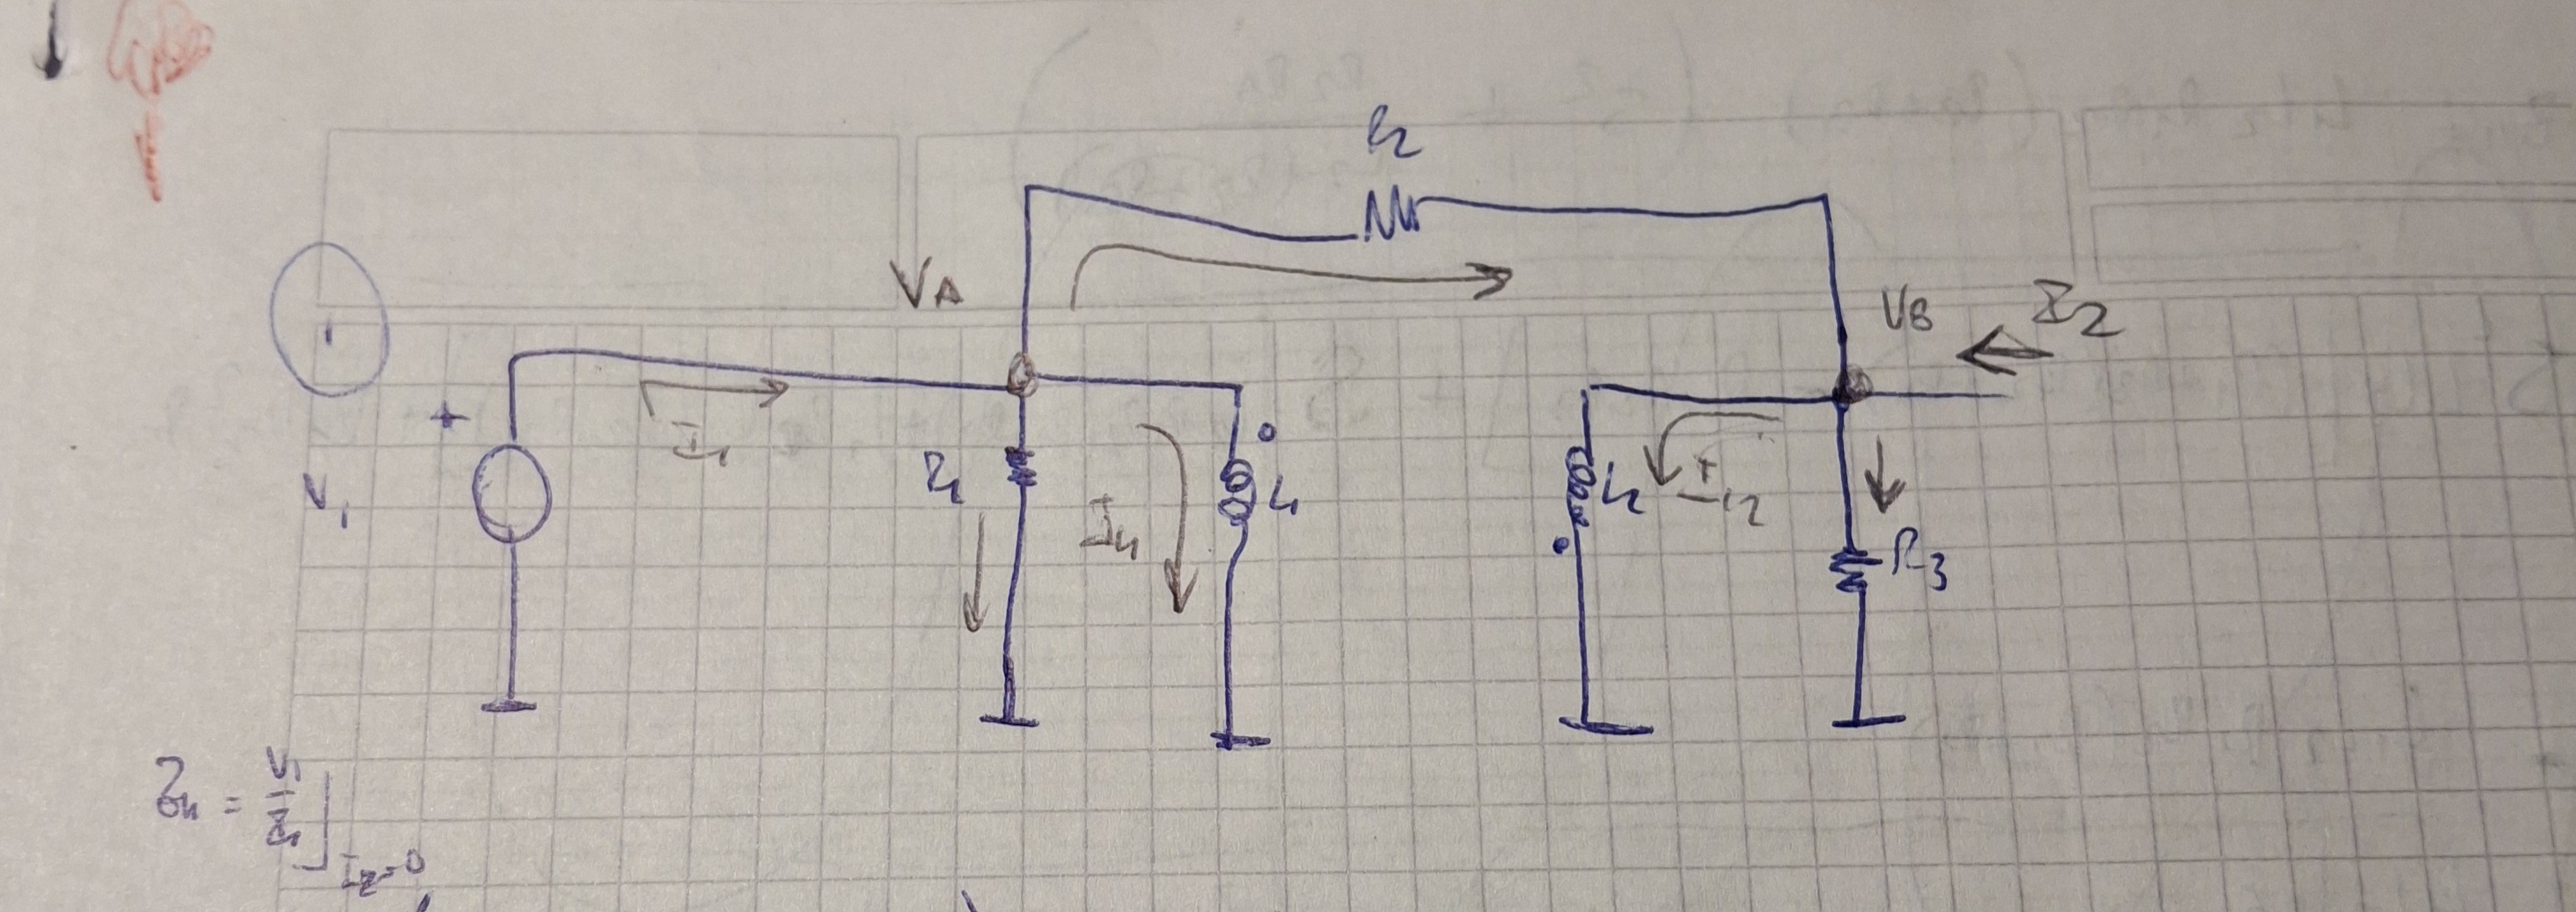 R2
VA
VB
I2
+
I1
V1
R1
IL1
L1
L2
IL2
R3
Z11 = V1
I1
I2=0